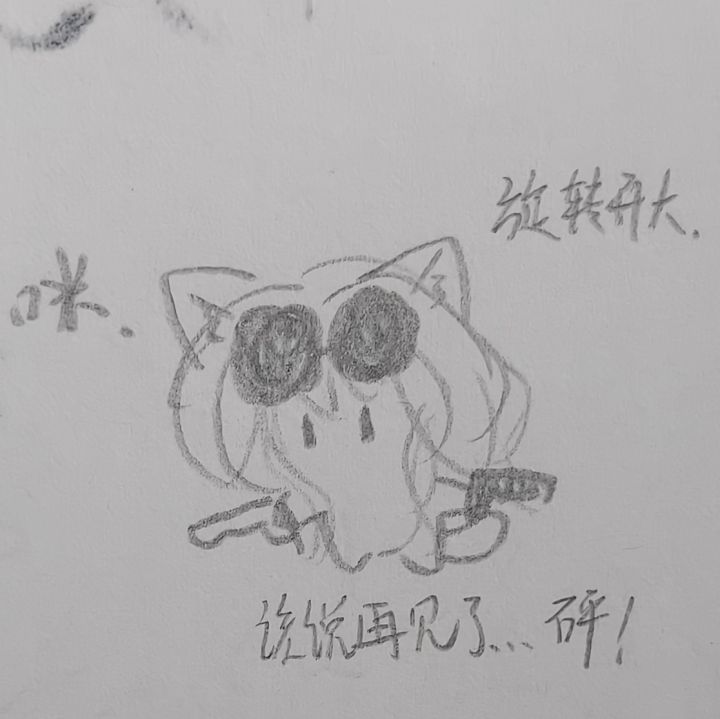 旋转开大.
咪.
该说再见了...砰!